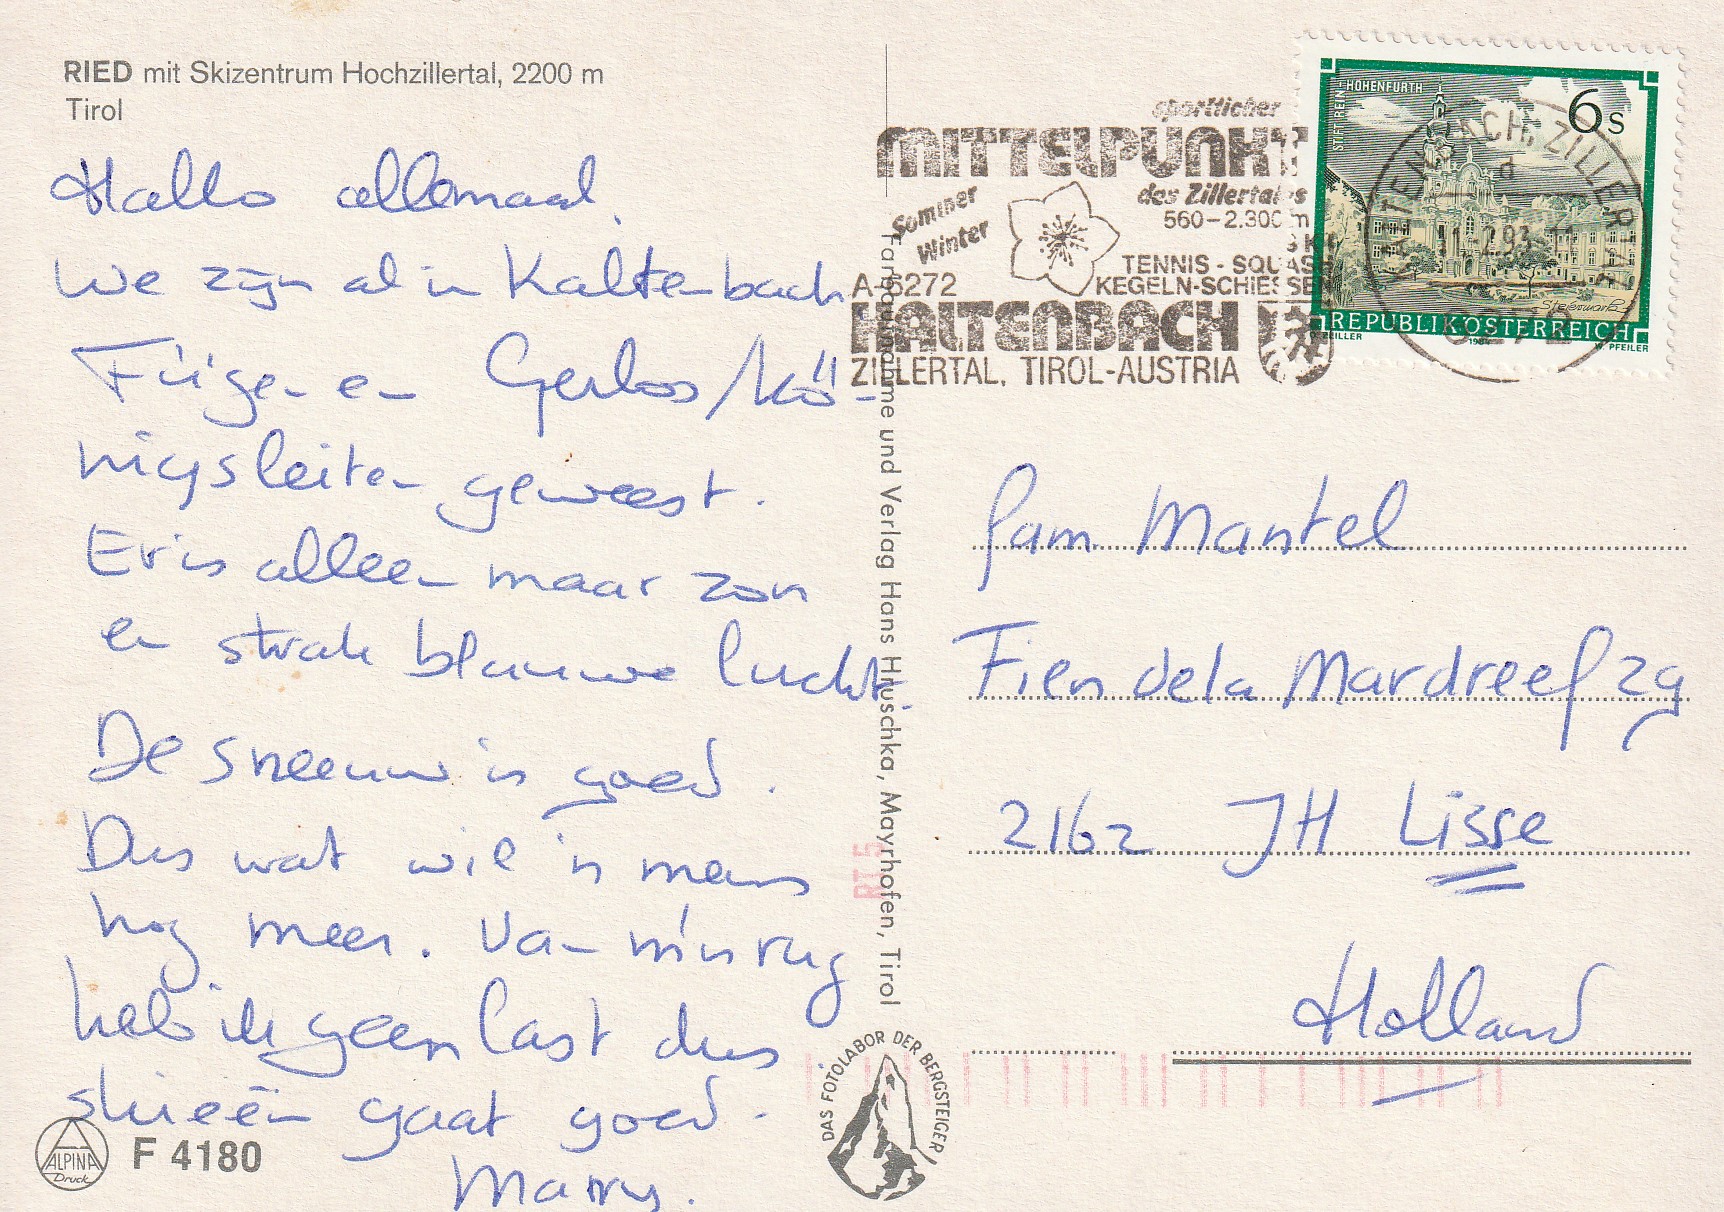 RIED mit Skizentrum Hochzillertal, 2200 m
Tirol
Hallo allemaal,
We zijn al in Kaltenbach
Fügen en Gerlos/Kö-
nigsleiten geweest.
Er is alleen maar zon
en strak blauwe lucht.
De sneeuw is goed.
Dus wat wil 'n mens
nog meer. Van m'n rug
heb ik geen last dus
skieën gaat goed.
F 4180
ALPINA
Druck
Farbaufnahme und Verlag Hans Hruschka, Mayrhofen, Tirol
DAS FOTOLABOR DER BERGSTEIGER
sportlicher
MITTELPUNKT
des Zillertales
560-2.300 m
Sommer
Winter
TENNIS - SQUASH
KEGELN-SCHIESSEN
A-6272
KALTENBACH
ZILLERTAL, TIROL-AUSTRIA
STIFT REIN-HOHENFURTH
6 S
Steiermark
REPUBLIK ÖSTERREICH
ZEILLER
W. PFEILER
KALTENBACH, ZILLERTAL
6272
Fam Mantel
Fien de la Mardreef 29
2162 JH Lisse
Holland